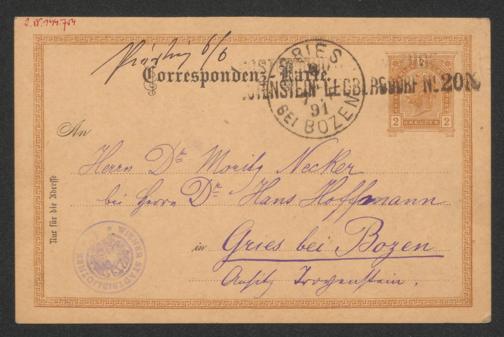 GRIES
Correspondenz-Karte.
91
BEI BOZEN
No. 20
2
KREUZER
2
An
Herrn Dr Moritz Necker
bei Herrn Dr Hans Hoffmann
in
Gries bei Bozen
Ansitz Troyenstein.
Nur für die Adresse
WIENER STADTBIBLIOTHEK